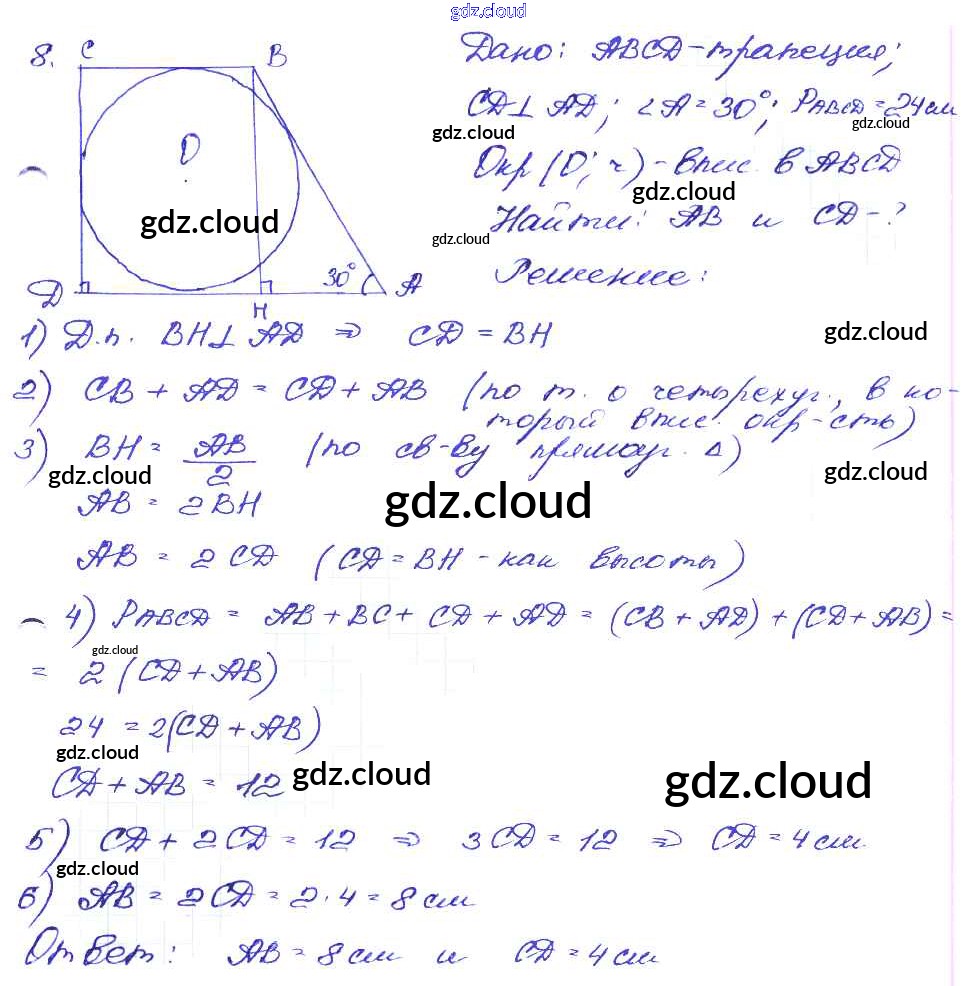 gdz.cloud
8. C B
Дано: ABCD-трапеция;
CD⊥AD; ∠A=30°; PABCD=24см
gdz.cloud gdz.cloud
O
Окр(O; r)-впис. в ABCD
gdz.cloud
gdz.cloud
Найти: AB и CD-?
gdz.cloud
Решение:
30°
D H A
1) Д.п. BH⊥AD ⇒ CD = BH
gdz.cloud
2) CB + AD = CD + AB (по т. о четырехуг., в ко-
торый впис. окр-сть)
3) BH = AB/2 (по св-ву прямоуг. Δ)
gdz.cloud gdz.cloud
AB = 2BH
gdz.cloud
AB = 2CD (CD=BH-как высоты)
4) PABCD = AB+BC+CD+AD=(CB+AD)+(CD+AB)=
gdz.cloud
= 2(CD+AB)
24 = 2(CD+AB)
gdz.cloud
CD+AB = 12
gdz.cloud gdz.cloud
5) CD+2CD=12 ⇒ 3CD=12 ⇒ CD=4см.
gdz.cloud
6) AB=2CD=2·4=8см
Ответ: AB=8см и CD=4см